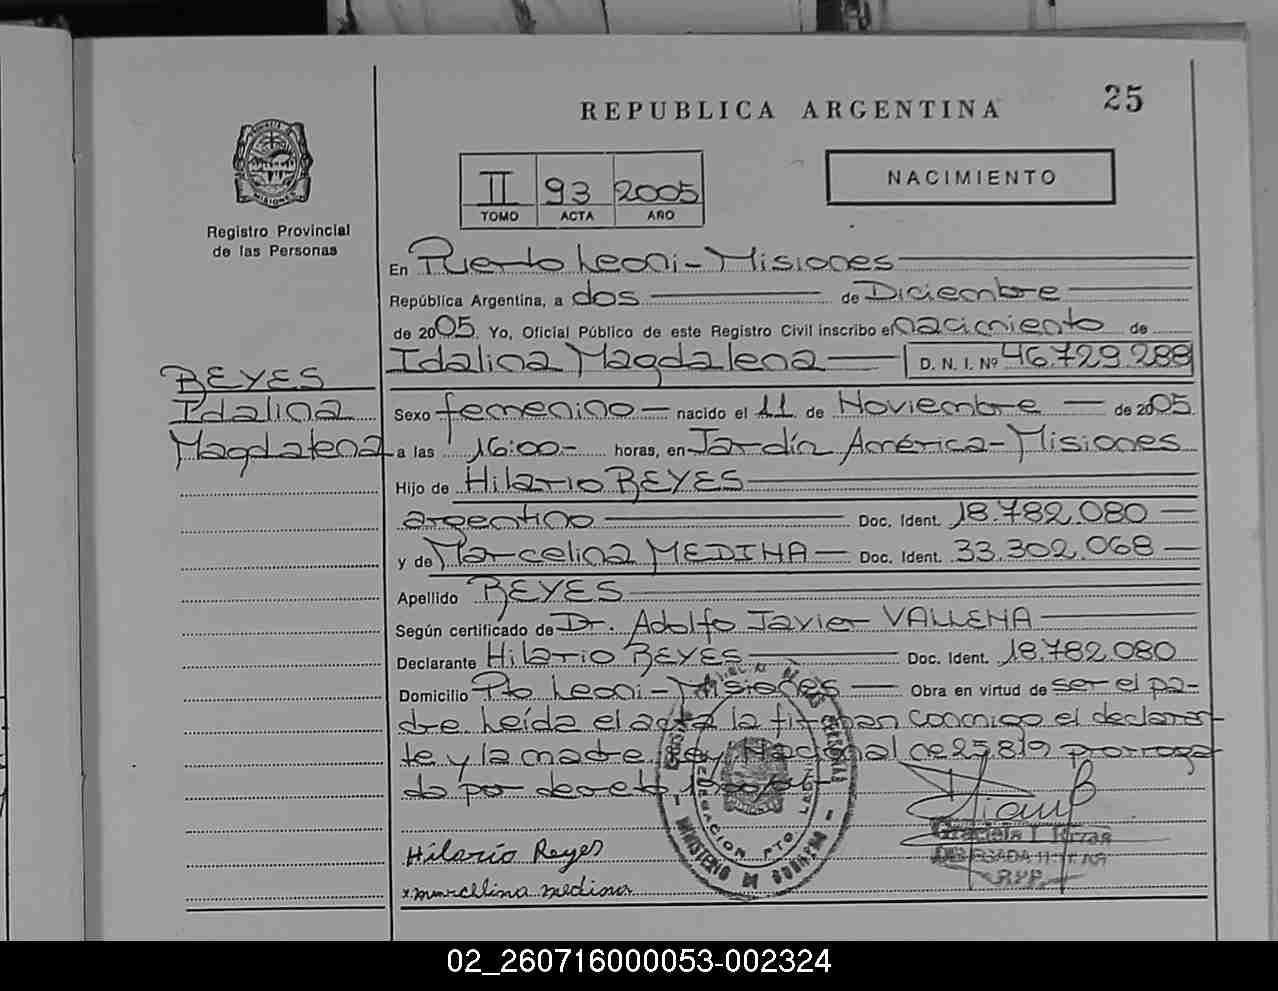 25
REPUBLICA ARGENTINA
NACIMIENTO
II 93 2005
TOMO ACTA AÑO
PROVINCIA DE
MISIONES
Registro Provincial
de las Personas
REYES
Idalina
Magdalena
En Puerto Leoni - Misiones
República Argentina, a dos de Diciembre
de 2005. Yo, Oficial Público de este Registro Civil inscribo el nacimiento de
Idalina Magdalena D. N. I. Nº 46.729.288
Sexo femenino nacido el 11 de Noviembre de 2005
a las 16:00.- horas, en Jardín América - Misiones
Hijo de Hilario REYES
argentino Doc. Ident. 18.782.080
y de Marcelina MEDINA Doc. Ident. 33.302.068
Apellido REYES
Según certificado de Dr. Adolfo Javier VALLENA
Declarante Hilario REYES Doc. Ident. 18.782.080
Domicilio Pto Leoni - Misiones Obra en virtud de ser el pa-
dre. Leída el acta la firman conmigo el declaran-
te y la madre. Ley Nacional 25819 prorroga-
do por decreto
Hilario Reyes
x marcelina medina
MINISTERIO DE GOBIERNO
DELEGACION PTO. LEONI
Graciela
R.P.P.
02_260716000053-002324